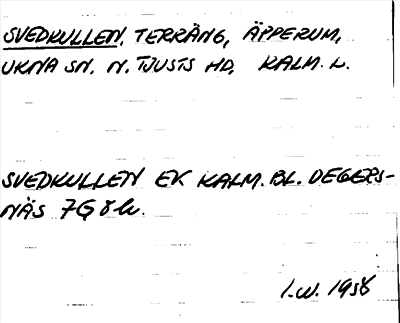 SVEDKULLEN, TERRÄNG, ÄPPERUM,
UKNA SN. N. TJUSTS HD, KALM. L.
SVEDKULLEN EK KALM. BL. DEGERS-
NÄS 7G 8h.
I.W. 1958